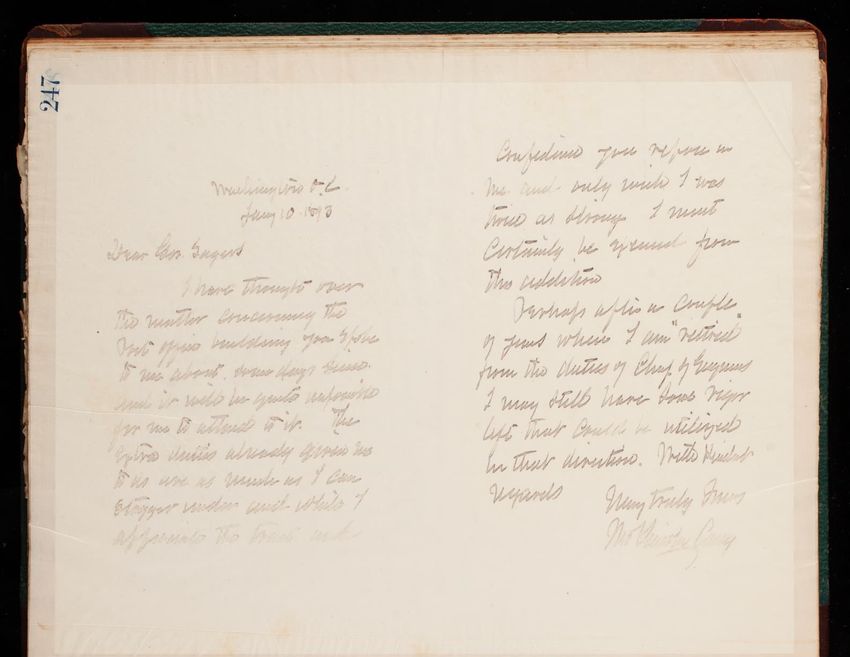 247
Washington D.C.
Jany 10. 1893
Dear Gov.
I have thought over
the matter concerning the
Post office building you spoke
to me about some days since
and it will be quite impossible
for me to attend to it. The
extra duties already given me
to as are as much as I can
stagger under and while I
appreciate the trust and
Confidence you repose in
me and only wish I was
twice as strong I must
Certainly be excused from
this addition
Perhaps after a Couple
of years when I am "retired"
from the duties of Chief of Engineers
I may still have some vigor
left that could be utilized
in that direction. With kindest
regards
Very truly Yours
Thos Lincoln Casey